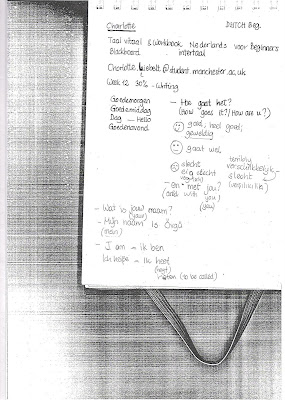 Charlotte DUTCH Beg.
Taal vitaal & Workbook Nederlands voor beginners
Blackboard intertaal
Charlotte. @student.manchester.ac.uk
Week 12 30% - Writing
Goedemorgen - Hoe gaat het?
Goedemiddag (How goes it?/How are u?)
Dag - Hello goed; heel goed;
Goedenavond geweldig
gaat wel
slecht
erg slecht
slecht
- en met jou?
(and with you)
(you)
- Wat is jouw naam?
(your)
- Mijn naam is
(mein)
- I am = ik ben
= ik heet
(to be called)